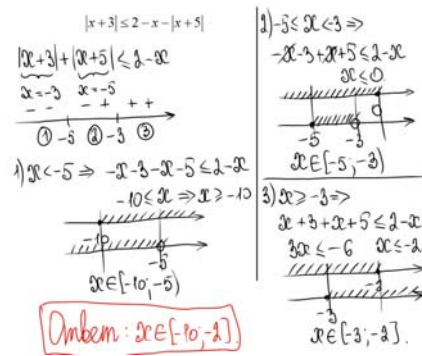 |x+3| ≤ 2-x-|x+5|
|x+3|+|x+5| ≤ 2-x
x=-3 x=-5
- - - + + +
① -5 ② -3 ③
1) x<-5 ⇒ -x-3-x-5 ≤ 2-x
-10 ≤ x ⇒ x ≥ -10
-10
-5
x∈[-10; -5)
Ответ: x∈[-10; -2].
2) -5 ≤ x < -3 ⇒
-x-3+x+5 ≤ 2-x
x ≤ 0
0
-5 -3
x∈[-5; -3)
3) x ≥ -3 ⇒
x+3+x+5 ≤ 2-x
3x ≤ -6 x ≤ -2
-2
-3
x∈[-3; -2].